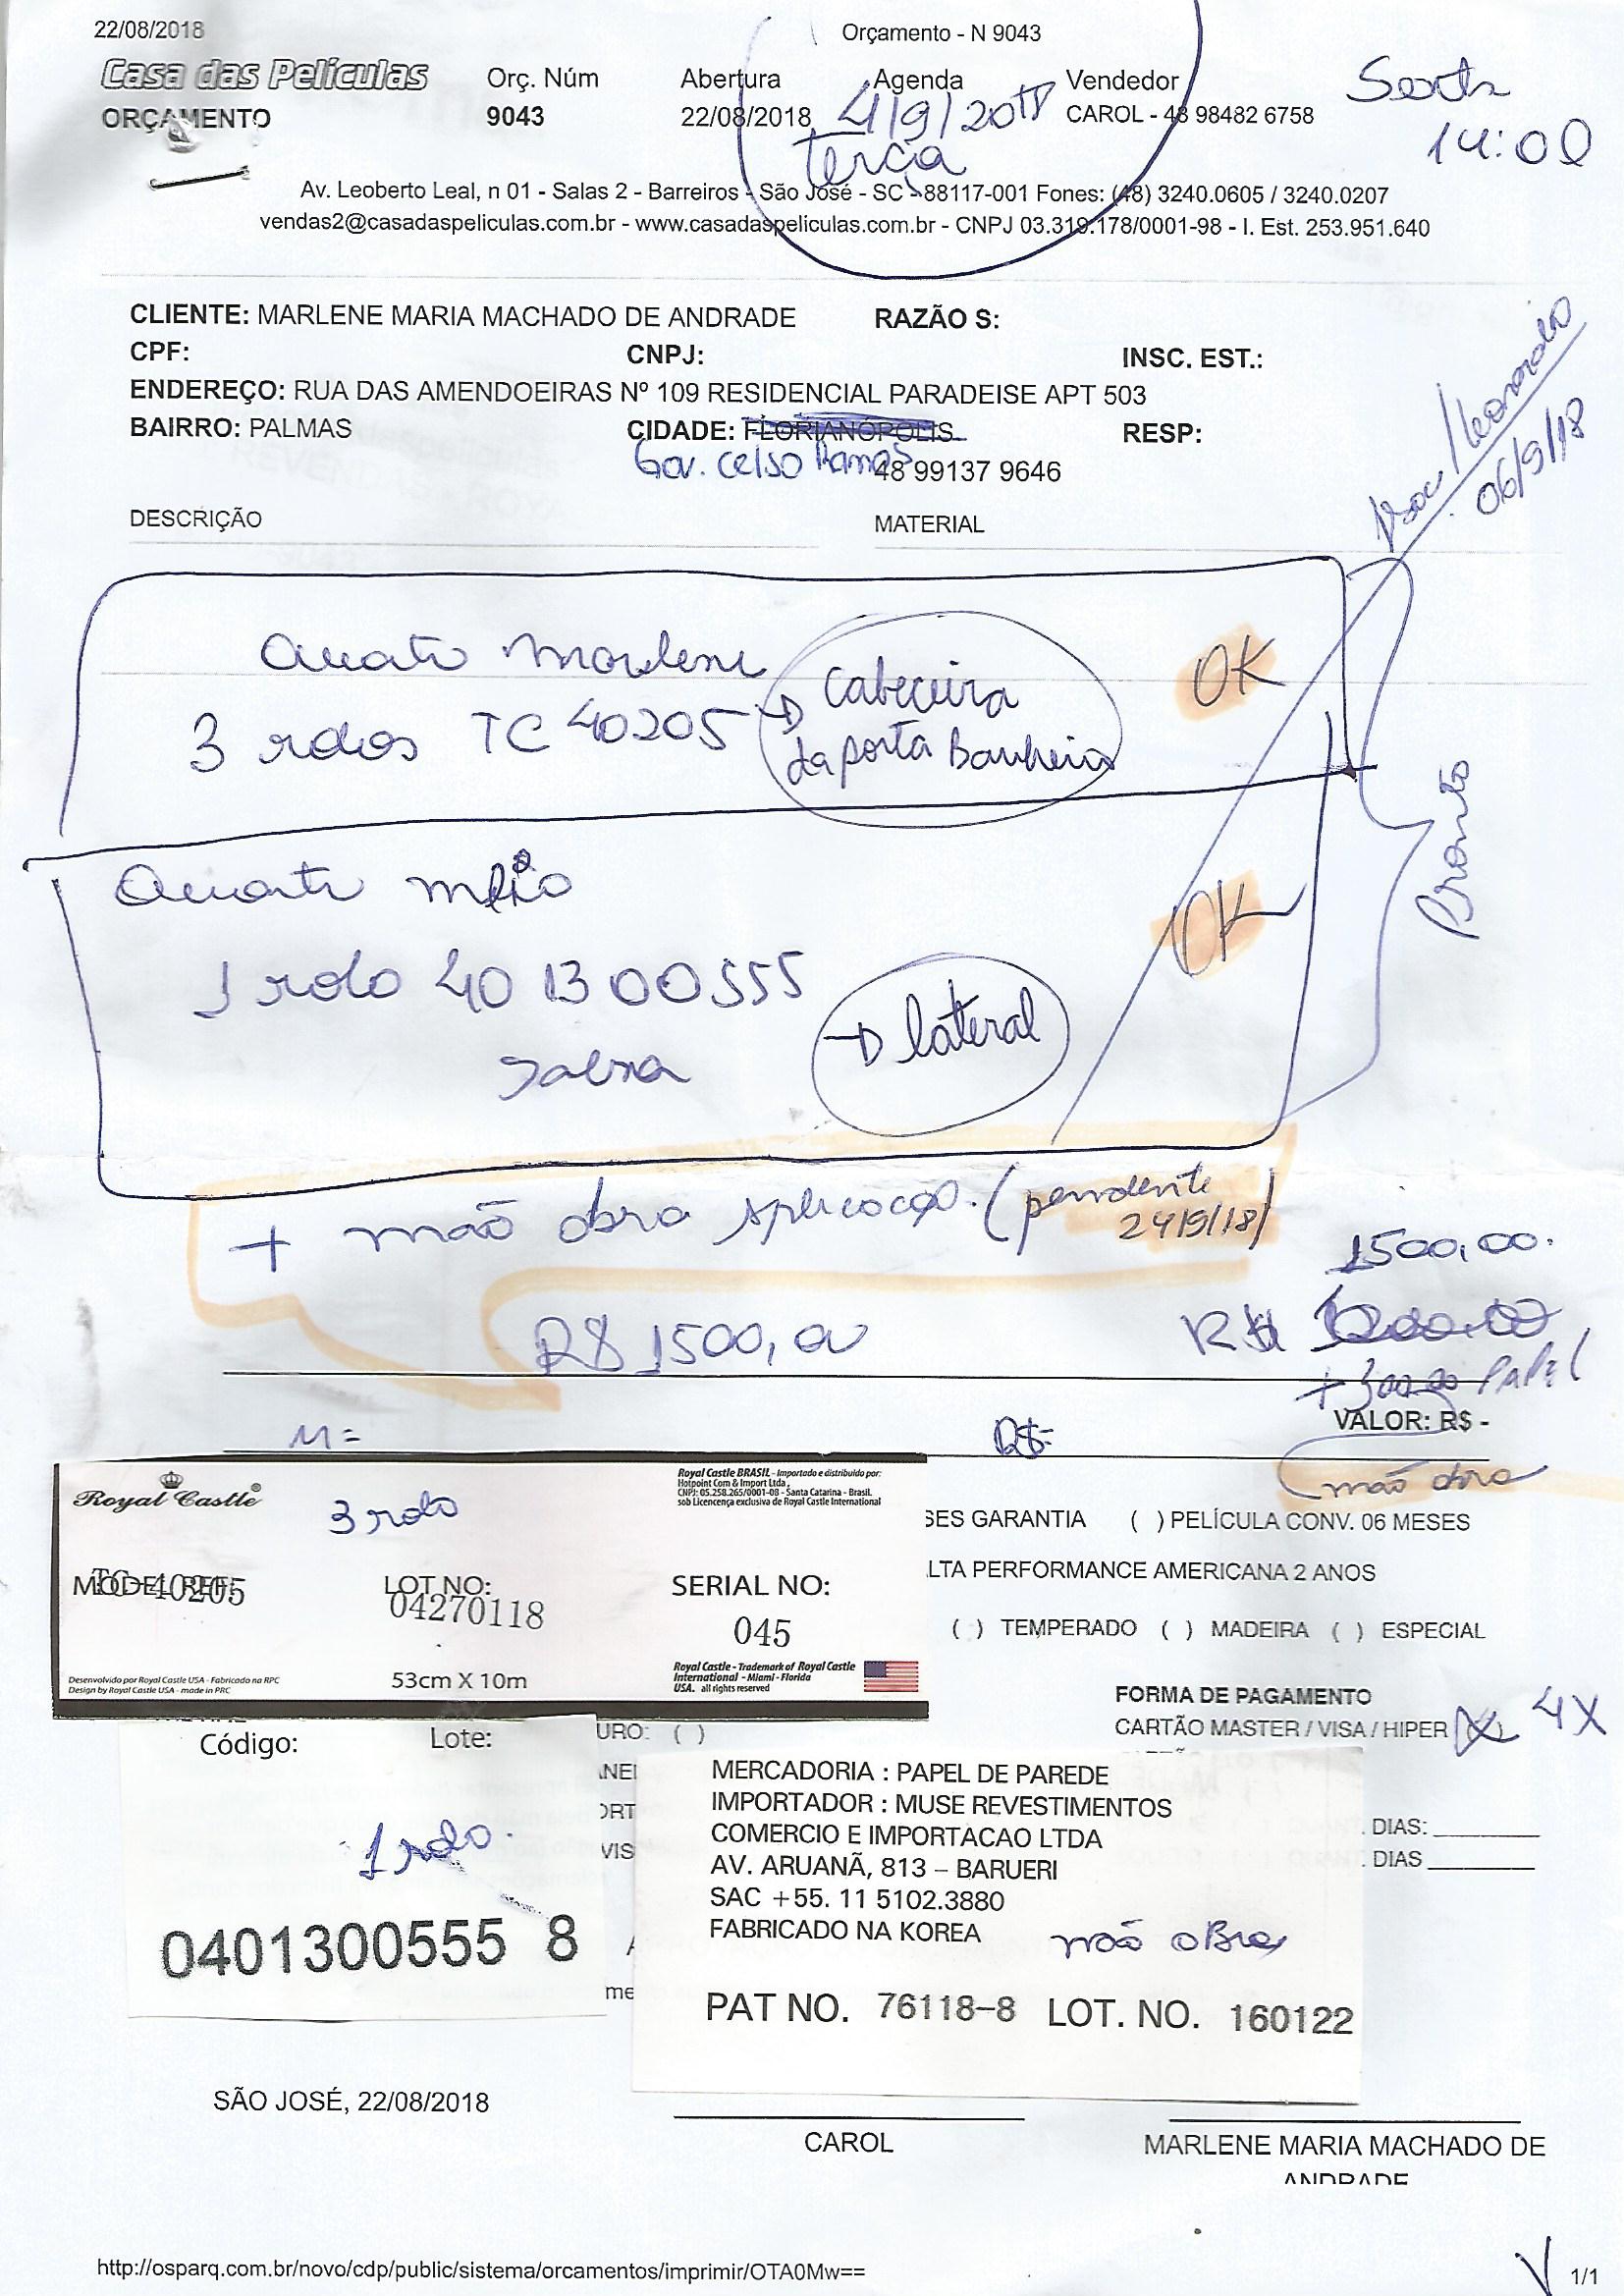 22/08/2018 Orçamento - N 9043
Casa das Películas Orç. Núm Abertura Agenda Vendedor Sexta
ORÇAMENTO 9043 22/08/2018 4/9/2018 CAROL - 48 98482 6758 14:00
terça
Av. Leoberto Leal, n 01 - Salas 2 - Barreiros - São José - SC - 88117-001 Fones: (48) 3240.0605 / 3240.0207
vendas2@casadaspeliculas.com.br - www.casadaspeliculas.com.br - CNPJ 03.319.178/0001-98 - I. Est. 253.951.640
CLIENTE: MARLENE MARIA MACHADO DE ANDRADE RAZÃO S:
CPF: CNPJ: INSC. EST.:
ENDEREÇO: RUA DAS AMENDOEIRAS Nº 109 RESIDENCIAL PARADEISE APT 503
BAIRRO: PALMAS CIDADE: FLORIANÓPOLIS RESP:
Gov. Celso Ramos 48 99137 9646
Leonardo
06/9/18
DESCRIÇÃO MATERIAL
Quarto Marlene
3 rolos TC 40205 → Cabeceira
da porta Banheiro
OK
Pronto
Quarto meio
1 rolo 401300555
→ lateral
OK
+ mão obra aplicação. (pendente
24/9/18)
1500,00.
R$ 1500,00 R$
+ papel
VALOR: R$ -
M= R$-
mão obra
Royal Castle 3 rolo
Royal Castle BRASIL - Importado e distribuido por:
Hotpoint Com & Import Ltda,
CNPJ: 05.258.265/0001-08 - Santa Catarina - Brasil.
sob Licencença exclusiva de Royal Castle International
MODEL REF: LOT NO: SERIAL NO:
TC-40205 04270118 045
53cm X 10m
Desenvolvido por Royal Castle USA - Fabricado na RPC
Design by Royal Castle USA - made in PRC
Royal Castle - Trademark of Royal Castle
International - Miami - Florida
USA. all rights reserved
SES GARANTIA ( ) PELÍCULA CONV. 06 MESES
LTA PERFORMANCE AMERICANA 2 ANOS
( ) TEMPERADO ( ) MADEIRA ( ) ESPECIAL
FORMA DE PAGAMENTO
CARTÃO MASTER / VISA / HIPER (X) 4X
Código: Lote: URO: ( )
1 rolo.
0401300555 8
MERCADORIA : PAPEL DE PAREDE
IMPORTADOR : MUSE REVESTIMENTOS
COMERCIO E IMPORTACAO LTDA
AV. ARUANÃ, 813 – BARUERI
SAC +55. 11 5102.3880
FABRICADO NA KOREA mão obra
PAT NO. 76118-8 LOT. NO. 160122
. DIAS:
. DIAS
SÃO JOSÉ, 22/08/2018
CAROL MARLENE MARIA MACHADO DE
ANDRADE
http://osparq.com.br/novo/cdp/public/sistema/orcamentos/imprimir/OTA0Mw== 1/1